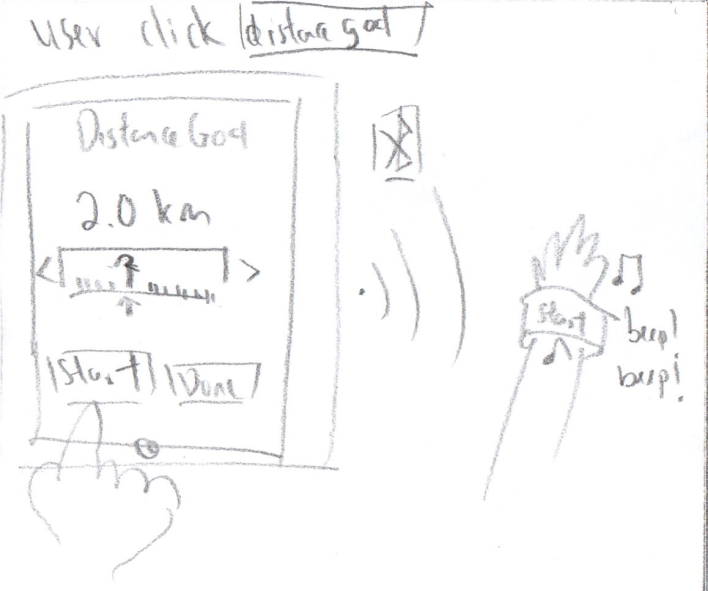 user click distance goal
Distance Goal
2.0 km
< 2 >
Start Done
Start
beep!
beep!